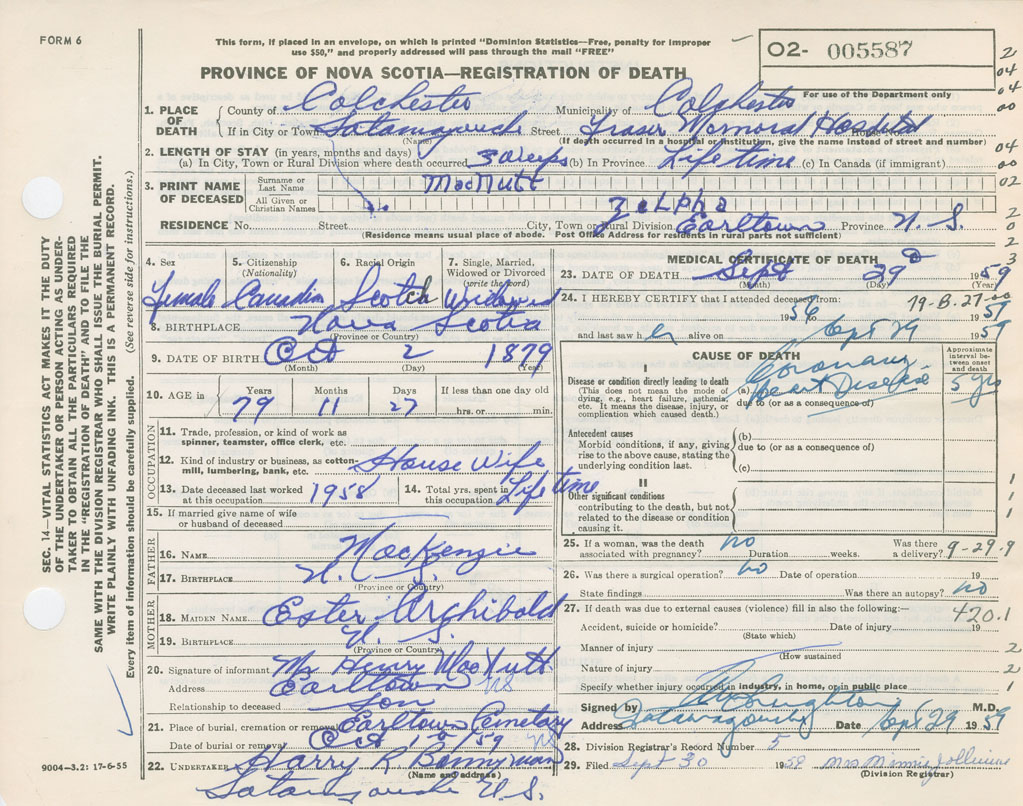 FORM 6
This form, if placed in an envelope, on which is printed "Dominion Statistics—Free, penalty for improper
use $50," and properly addressed will pass through the mail "FREE"
02- 005587
For use of the Department only
PROVINCE OF NOVA SCOTIA—REGISTRATION OF DEATH
2
04
04
00
04
00
02
2
0
2
3
1. PLACE OF DEATH
County of Colchester Municipality of Colchester
If in City or Town Tatamagouche Street Fraser Memorial Hospital
(Name) (If death occurred in a hospital or institution, give the name instead of street and number)
2. LENGTH OF STAY (in years, months and days)
(a) In City, Town or Rural Division where death occurred 3 Weeks (b) In Province Life time (c) In Canada (if immigrant)
3. PRINT NAME OF DECEASED
Surname or Last Name MacNutt
All Given or Christian Names Zelpha
RESIDENCE No. Street City, Town or Rural Division Earltown Province N. S.
(Residence means usual place of abode. Post Office Address for residents in rural parts not sufficient)
4. Sex Female
5. Citizenship (Nationality) Canadian
6. Racial Origin Scotch
7. Single, Married, Widowed or Divorced (write the word) Widowed
8. BIRTHPLACE Nova Scotia
(Province or Country)
9. DATE OF BIRTH Oct 2 1879
(Month) (Day) (Year)
10. AGE in Years 79 Months 11 Days 27 If less than one day old
hrs. or min.
OCCUPATION
11. Trade, profession, or kind of work as
spinner, teamster, office clerk, etc.
12. Kind of industry or business, as cotton-
mill, lumbering, bank, etc. House Wife
13. Date deceased last worked at this occupation 1958
14. Total yrs. spent in this occupation Life time
15. If married give name of wife
or husband of deceased
FATHER
16. NAME MacKenzie
17. BIRTHPLACE N. S.
(Province or Country)
MOTHER
18. MAIDEN NAME Ester Archibold
19. BIRTHPLACE N. S.
(Province or Country)
20. Signature of informant Mr Henry MacNutt
Address Earltown NS
Relationship to deceased Son
21. Place of burial, cremation or removal Earltown Cemetary
Date of burial or removal Oct 1 - 59 NS
22. UNDERTAKER Harry R Bonnyman
(Name and address)
Tatamagouche N.S.
MEDICAL CERTIFICATE OF DEATH
23. DATE OF DEATH Sept 29 1959
(Month) (Day) (Year)
24. I HEREBY CERTIFY that I attended deceased from: 79-B-27-00
1956 to Sept 29 1959
and last saw her alive on 1959
CAUSE OF DEATH
Approximate interval between onset and death
I
Disease or condition directly leading to death
(This does not mean the mode of
dying, e.g., heart failure, asthenia,
etc. It means the disease, injury, or
complication which caused death.)
(a) Coronary Heart Disease 5 yrs
due to (or as a consequence of)
Antecedent causes
Morbid conditions, if any, giving
rise to the above cause, stating the
underlying condition last.
(b)
due to (or as a consequence of)
(c)
II
Other significant conditions
contributing to the death, but not
related to the disease or condition
causing it.
1
1
1
25. If a woman, was the death
associated with pregnancy? No Duration weeks. Was there a delivery? 9-29-9
26. Was there a surgical operation? No Date of operation 19
State findings Was there an autopsy? No
27. If death was due to external causes (violence) fill in also the following:— 420.1
Accident, suicide or homicide? Date of injury 19
(State which)
Manner of injury 2
(How sustained
Nature of injury 2
Specify whether injury occurred in industry, in home, or in public place 1
Signed by M.D.
Address Tatamagouche Date Sept 29 1959
28. Division Registrar's Record Number 5
29. Filed Sept 30 1959 Mrs Minnie
(Division Registrar)
9004—3.2: 17-6-55
SEC. 14—VITAL STATISTICS ACT MAKES IT THE DUTY
OF THE UNDERTAKER OR PERSON ACTING AS UNDER-
TAKER TO OBTAIN ALL THE PARTICULARS REQUIRED
IN THE "REGISTRATION OF DEATH" AND TO FILE THE
SAME WITH THE DIVISION REGISTRAR WHO SHALL ISSUE THE BURIAL PERMIT.
WRITE PLAINLY WITH UNFADING INK. THIS IS A PERMANENT RECORD.
Every item of information should be carefully supplied. (See reverse side for instructions.)